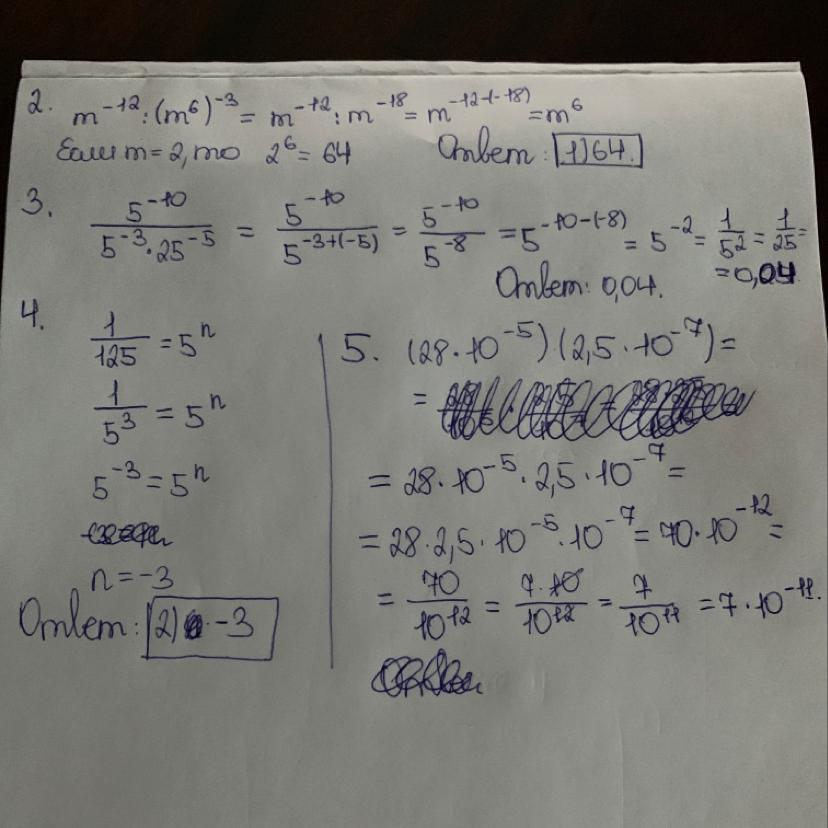 2. m⁻¹²:(m⁶)⁻³ = m⁻¹²:m⁻¹⁸ = m⁻¹²⁻⁽⁻¹⁸⁾ = m⁶
Если m = 2, то 2⁶ = 64 Ответ: 1) 64.
3. 5⁻¹⁰/(5⁻³·25⁻⁵) = 5⁻¹⁰/5⁻³⁺⁽⁻⁵⁾ = 5⁻¹⁰/5⁻⁸ = 5⁻¹⁰⁻⁽⁻⁸⁾ = 5⁻² = 1/5² = 1/25 =
= 0,04
Ответ: 0,04.
4.
1/125 = 5ⁿ
1/5³ = 5ⁿ
5⁻³ = 5ⁿ
n = -3
Ответ: 2) -3
5. (28·10⁻⁵)(2,5·10⁻⁷) =
=
= 28·10⁻⁵·2,5·10⁻⁷ =
= 28·2,5·10⁻⁵·10⁻⁷ = 70·10⁻¹² =
= 70/10¹² = 7·10/10¹² = 7/10¹¹ = 7·10⁻¹¹.